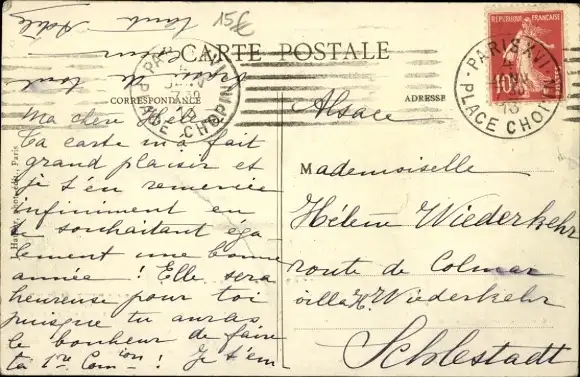 15
CARTE POSTALE
CORRESPONDANCE
ADRESSE
REPUBLIQUE FRANÇAISE
10
POSTES
PARIS XVI
PLACE CHOPIN
PLACE CHOPIN
Ma chère Hélène
Ta carte m'a fait
grand plaisir et
je t'en remercie
infiniment en
te souhaitant éga
lement une bonne
année ! Elle sera
heureuse pour toi
puisque tu auras
le bonheur de faire
ta 1re Comion ! Je t'em
de tout
cœur
tante
Alsace
Mademoiselle
Hélène Wiederkehr
route de Colmar
villa K. Wiederkehr
Schlestadt
Paris